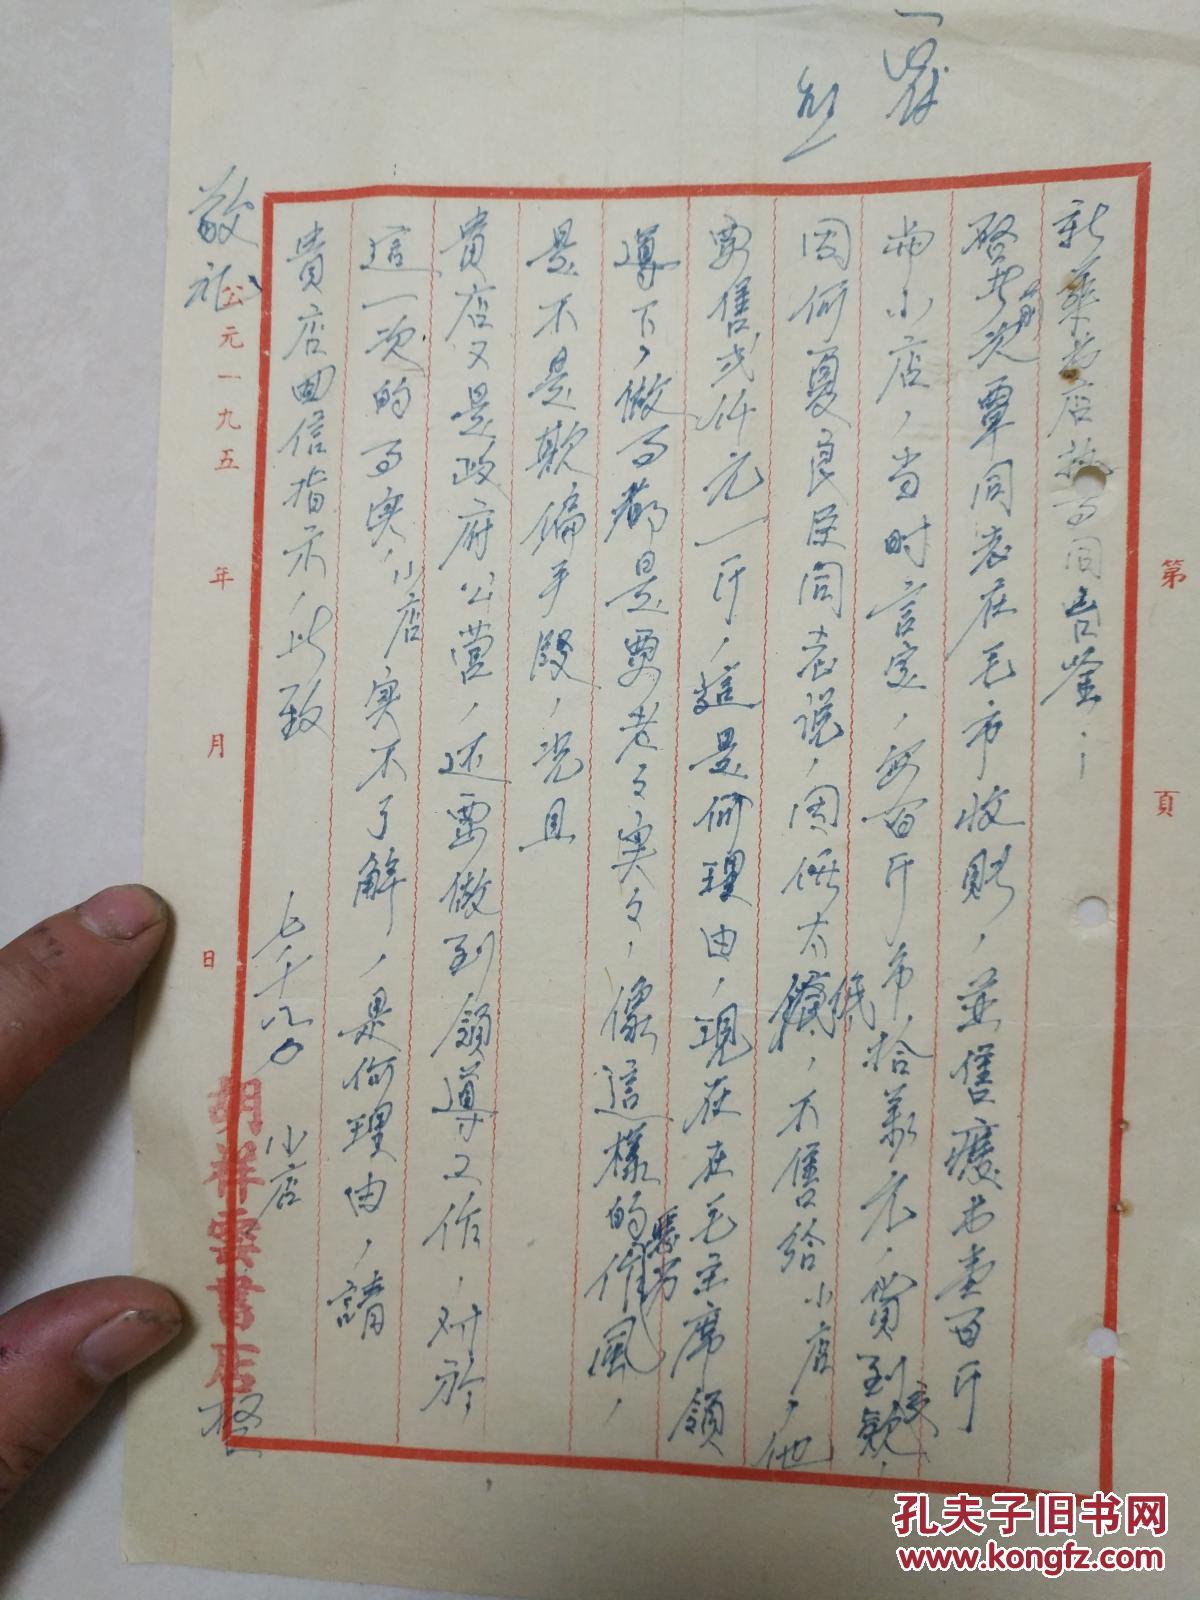 新華书店執事同志鉴：
啓者前次覃同志在毛市收賬，並售廢书壹百斤
由小店，当时言定，每百斤币拾萬元，貨到交款，
因何夏良臣同志说，因價太低，不售给小店，他
要售弍仟元一斤，這是何理由，現在在毛主席領
導下，做事都是要老々实々，像這樣的作風，
是不是欺偏手段，况且
貴店又是政府公营，还要做到領導工作，对於
這一次的事实，小店实不了解，是何理由，請
貴店回信指示，此致
敬礼
七月十八日 小店
胡祥雲書店
第 頁
公元一九五 年 月 日
孔夫子旧书网
www.kongfz.com